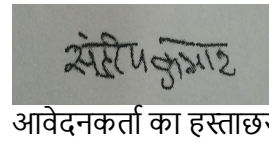 संदीप कुमार
आवेदनकर्ता का हस्ताछर